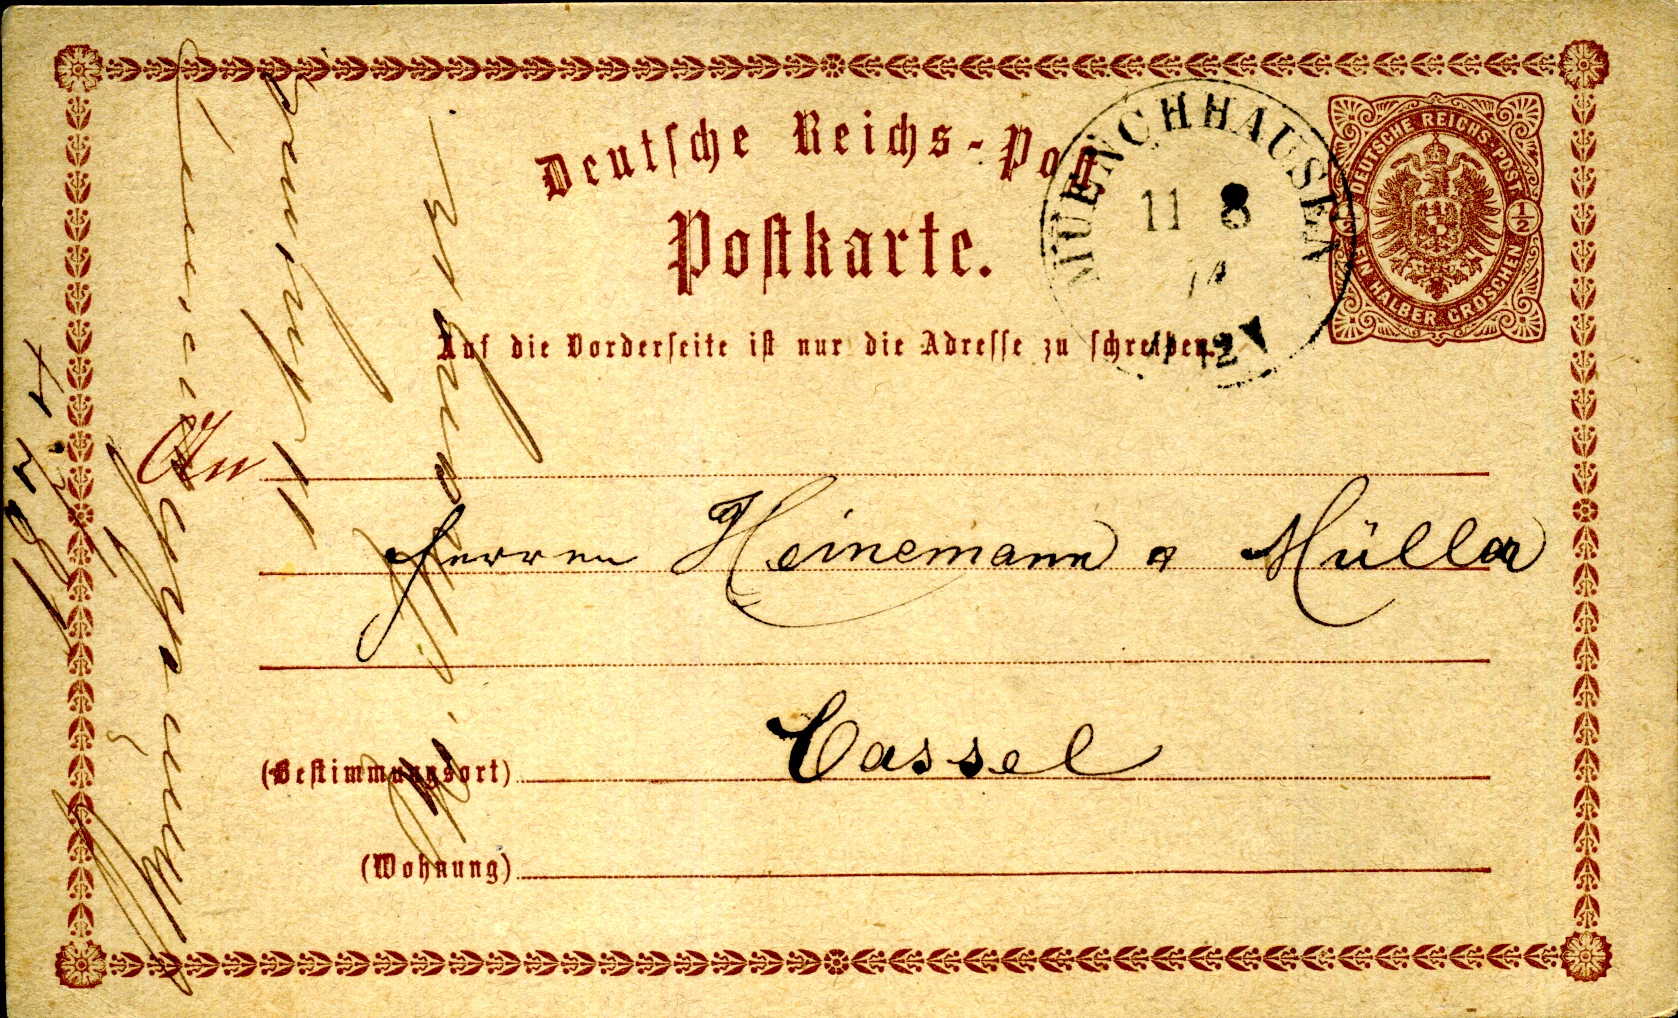 Deutsche Reichs-Post
Postkarte.
Auf die Vorderseite ist nur die Adresse zu schreiben.
MUENCHHAUSEN
11 8
74
DEUTSCHE REICHS-POST
½ ½
EIN HALBER GROSCHEN
An
Herren Heinemann & Müller
Cassel
(Bestimmungsort)
(Wohnung)
1874
Münchhausen
11 August